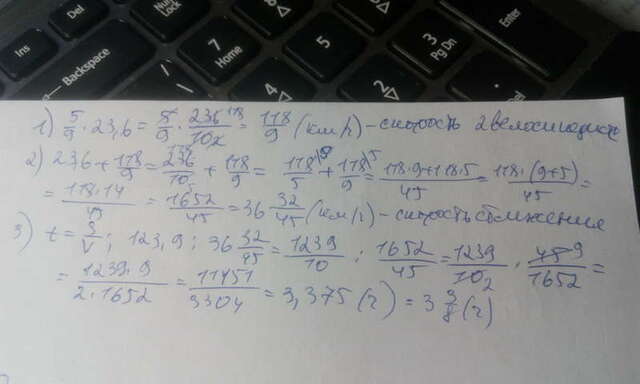 Ins
Del
Num Lock
Backspace
7 Home
8
5
3 Pg Dn
Enter
1) 5/9 · 23,6 = 5/9 · 236 118/10 2 = 118/9 (км/ч) - скорость 2 велосипедиста
2) 236 + 118/9 = 236 118/10 5 + 118/9 = 118 \9/5 + 118 \5/9 = 118·9+118·5/45 = 118·(9+5)/45 =
= 118·14/45 = 1652/45 = 36 32/45 (км/ч) - скорость сближения
3) t = S/V ; 123,9 : 36 32/45 = 1239/10 : 1652/45 = 1239/10 2 · 45 9/1652 =
= 1239·9/2·1652 = 11151/3304 = 3,375 (ч) = 3 3/8 (ч)